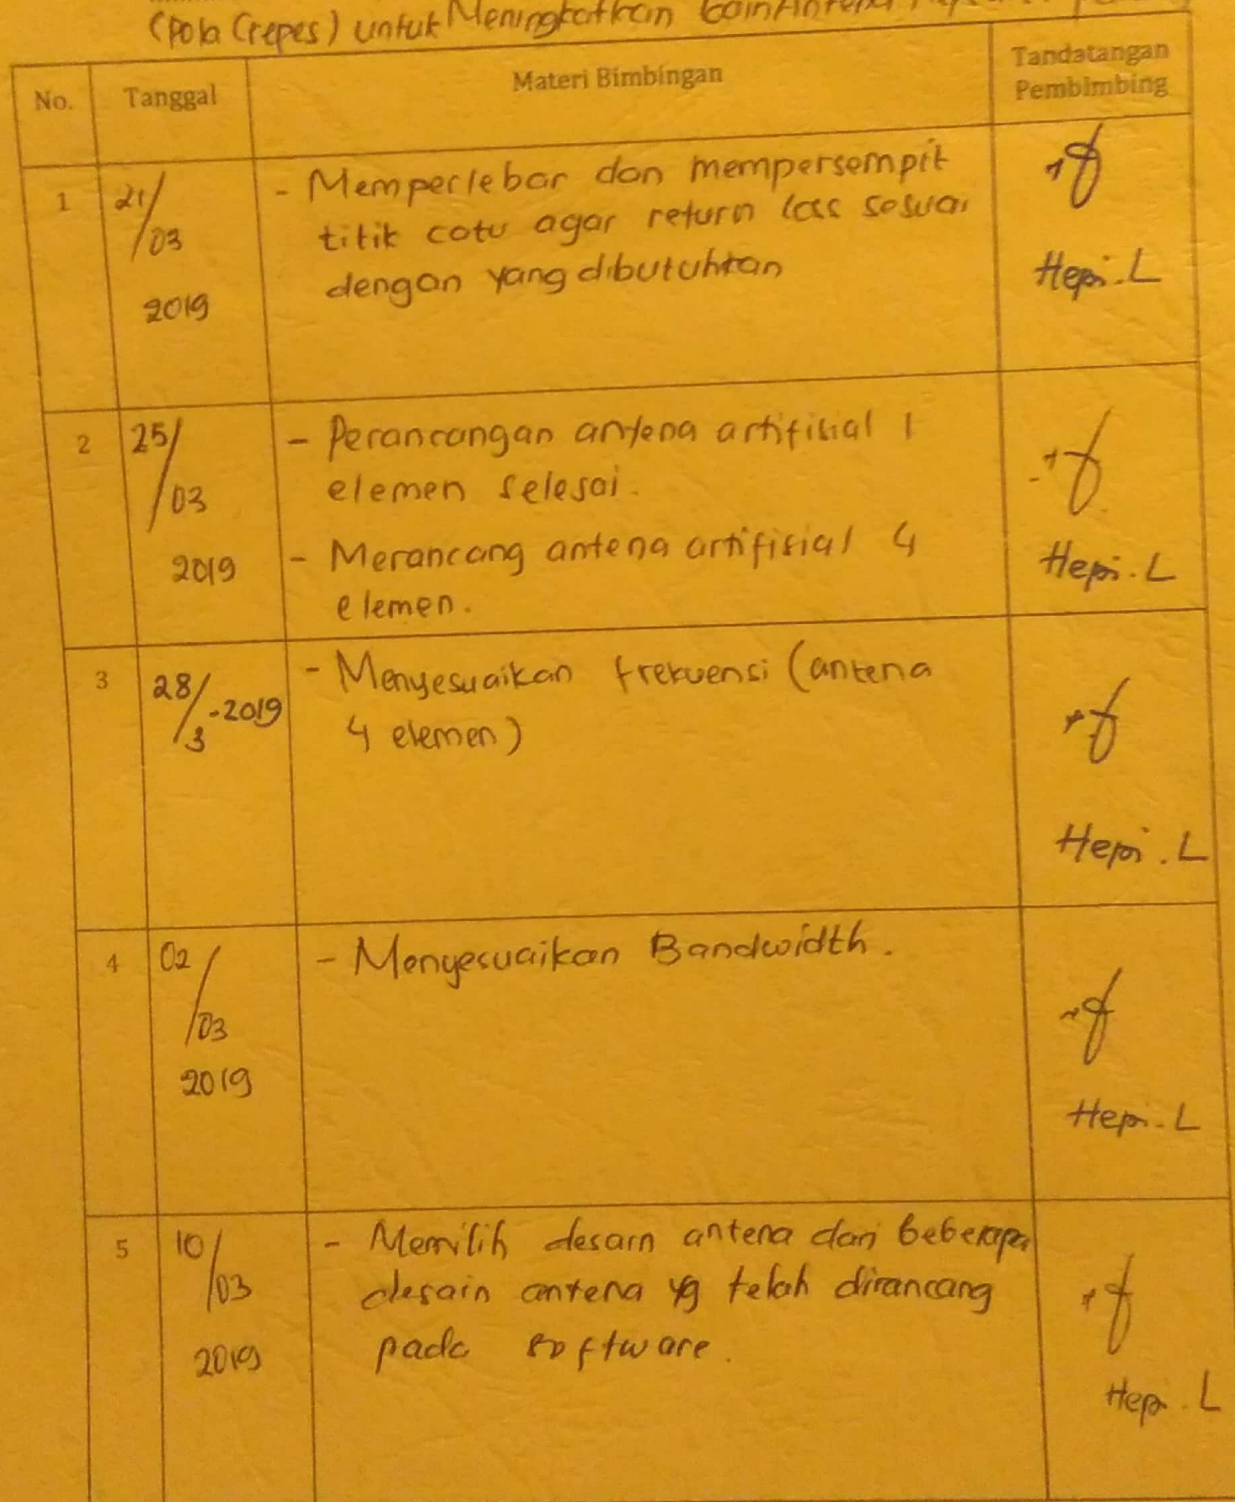 (Pola Crepes) untuk Meningkatkan Gain Antena
No. Tanggal Materi Bimbingan Tandatangan
Pembimbing
1 21/03 2019
- Memperlebar dan mempersempit
titik catu agar return loss sesuai
dengan yang dibutuhkan
Hepi. L
2 25/03 2019
- Perancangan antena artifisial 1
elemen selesai.
- Merancang antena artifisial 4
elemen.
Hepi. L
3 28/3-2019
- Menyesuaikan frekuensi (antena
4 elemen)
Hepi. L
4 02/03 2019
- Menyesuaikan Bandwidth.
Hepi. L
5 10/03 2019
- Memilih desain antena dari beberapa
desain antena yg telah dirancang
pada software.
Hepi. L